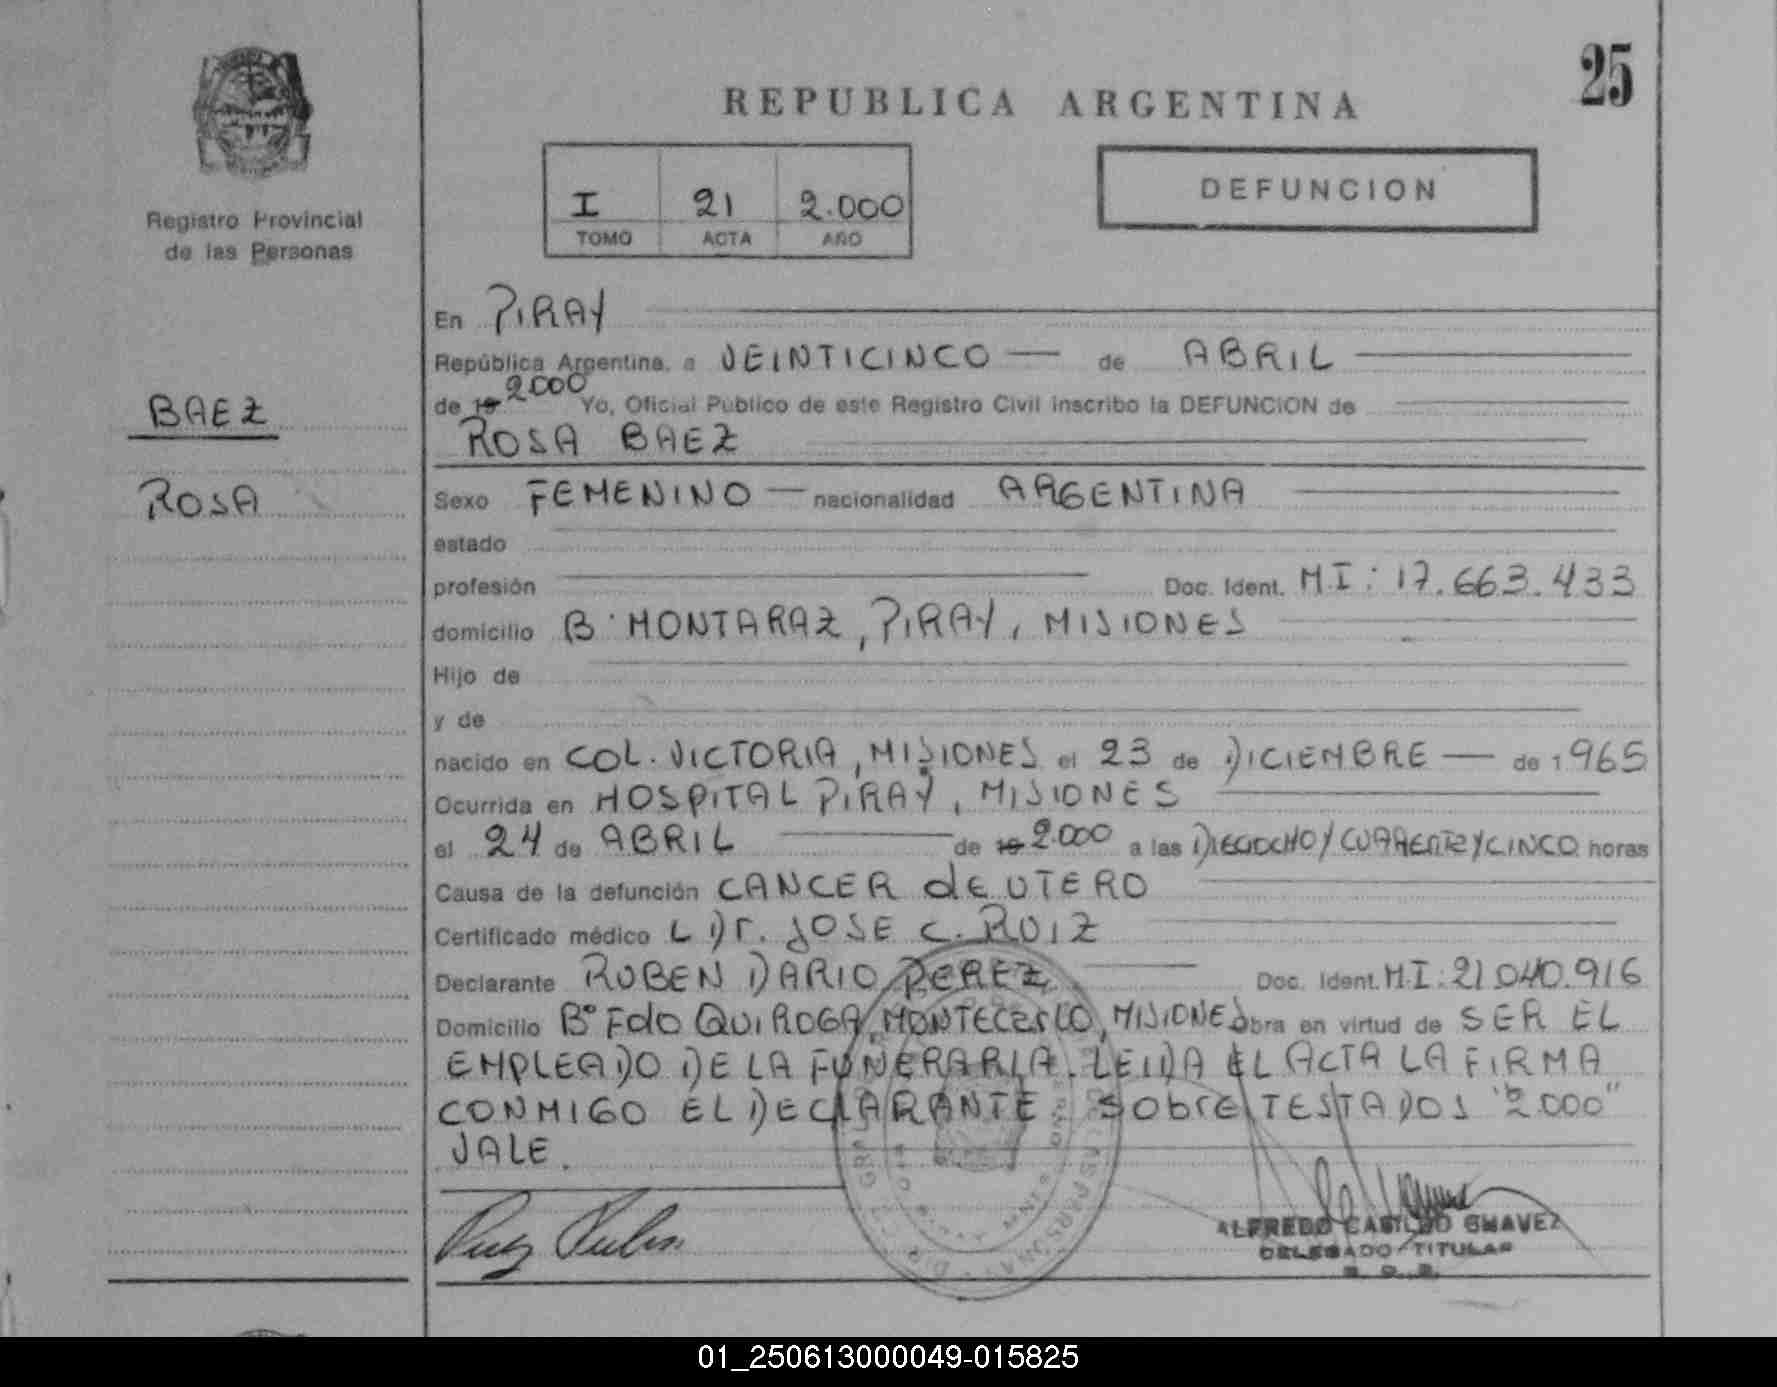 25
REPUBLICA ARGENTINA
I 21 2.000
TOMO ACTA AÑO
DEFUNCION
Registro Provincial
de las Personas
BAEZ
ROSA
En PIRAY
República Argentina, a VEINTICINCO de ABRIL
de 19 2.000 Yo, Oficial Público de este Registro Civil inscribo la DEFUNCION de
ROSA BAEZ
Sexo FEMENINO nacionalidad ARGENTINA
estado
profesión Doc. Ident. M.I: 17.663.433
domicilio B. MONTARAZ, PIRAY, MISIONES
Hijo de
y de
nacido en COL. VICTORIA, MISIONES el 23 de DICIEMBRE de 1965
Ocurrida en HOSPITAL PIRAY, MISIONES
el 24 de ABRIL de 19 2.000 a las DIECIOCHO Y CUARENTA Y CINCO horas
Causa de la defunción CANCER de UTERO
Certificado médico L Dr. JOSE C. RUIZ
Declarante RUBEN DARIO PEREZ Doc. Ident. M.I: 21.040.916
Domicilio Bº Fdo QUIROGA, MONTECARLO, MISIONES obra en virtud de SER EL
EMPLEADO DE LA FUNERARIA. LEIDA EL ACTA LA FIRMA
CONMIGO EL DECLARANTE. SobreTESTADOS "2.000"
VALE.
ALFREDO CASILDO CHAVEZ
DELEGADO TITULAR
01_250613000049-015825